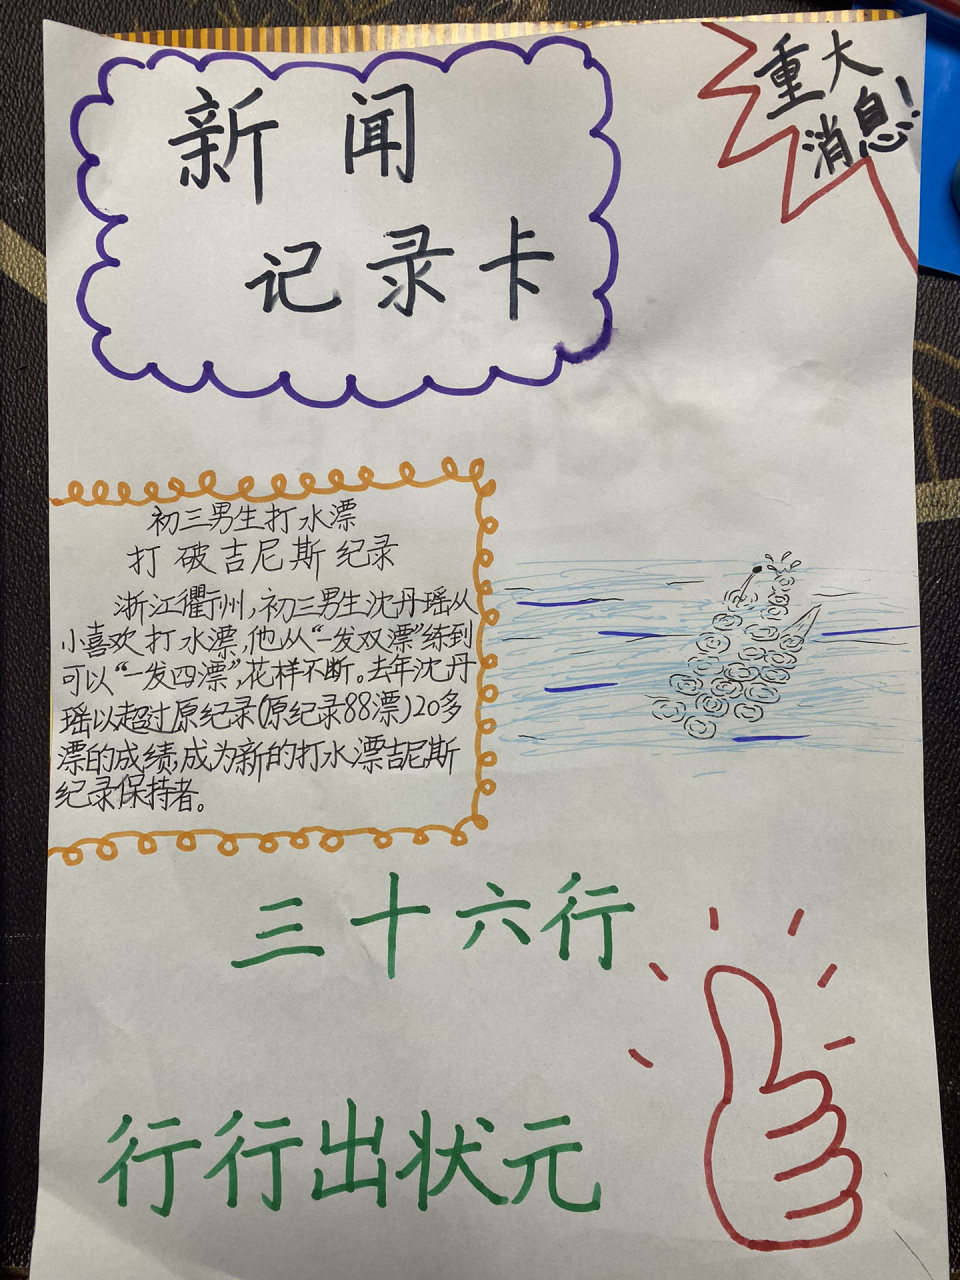 新闻
记录卡
重大
消息!
初三男生打水漂
打破吉尼斯纪录
浙江衢州,初三男生沈丹瑶从
小喜欢打水漂,他从“一发双漂”练到
可以“一发四漂”,花样不断。去年沈丹
瑶以超过原纪录(原纪录88漂)20多
漂的成绩,成为新的打水漂吉尼斯
纪录保持者。
三十六行
行行出状元